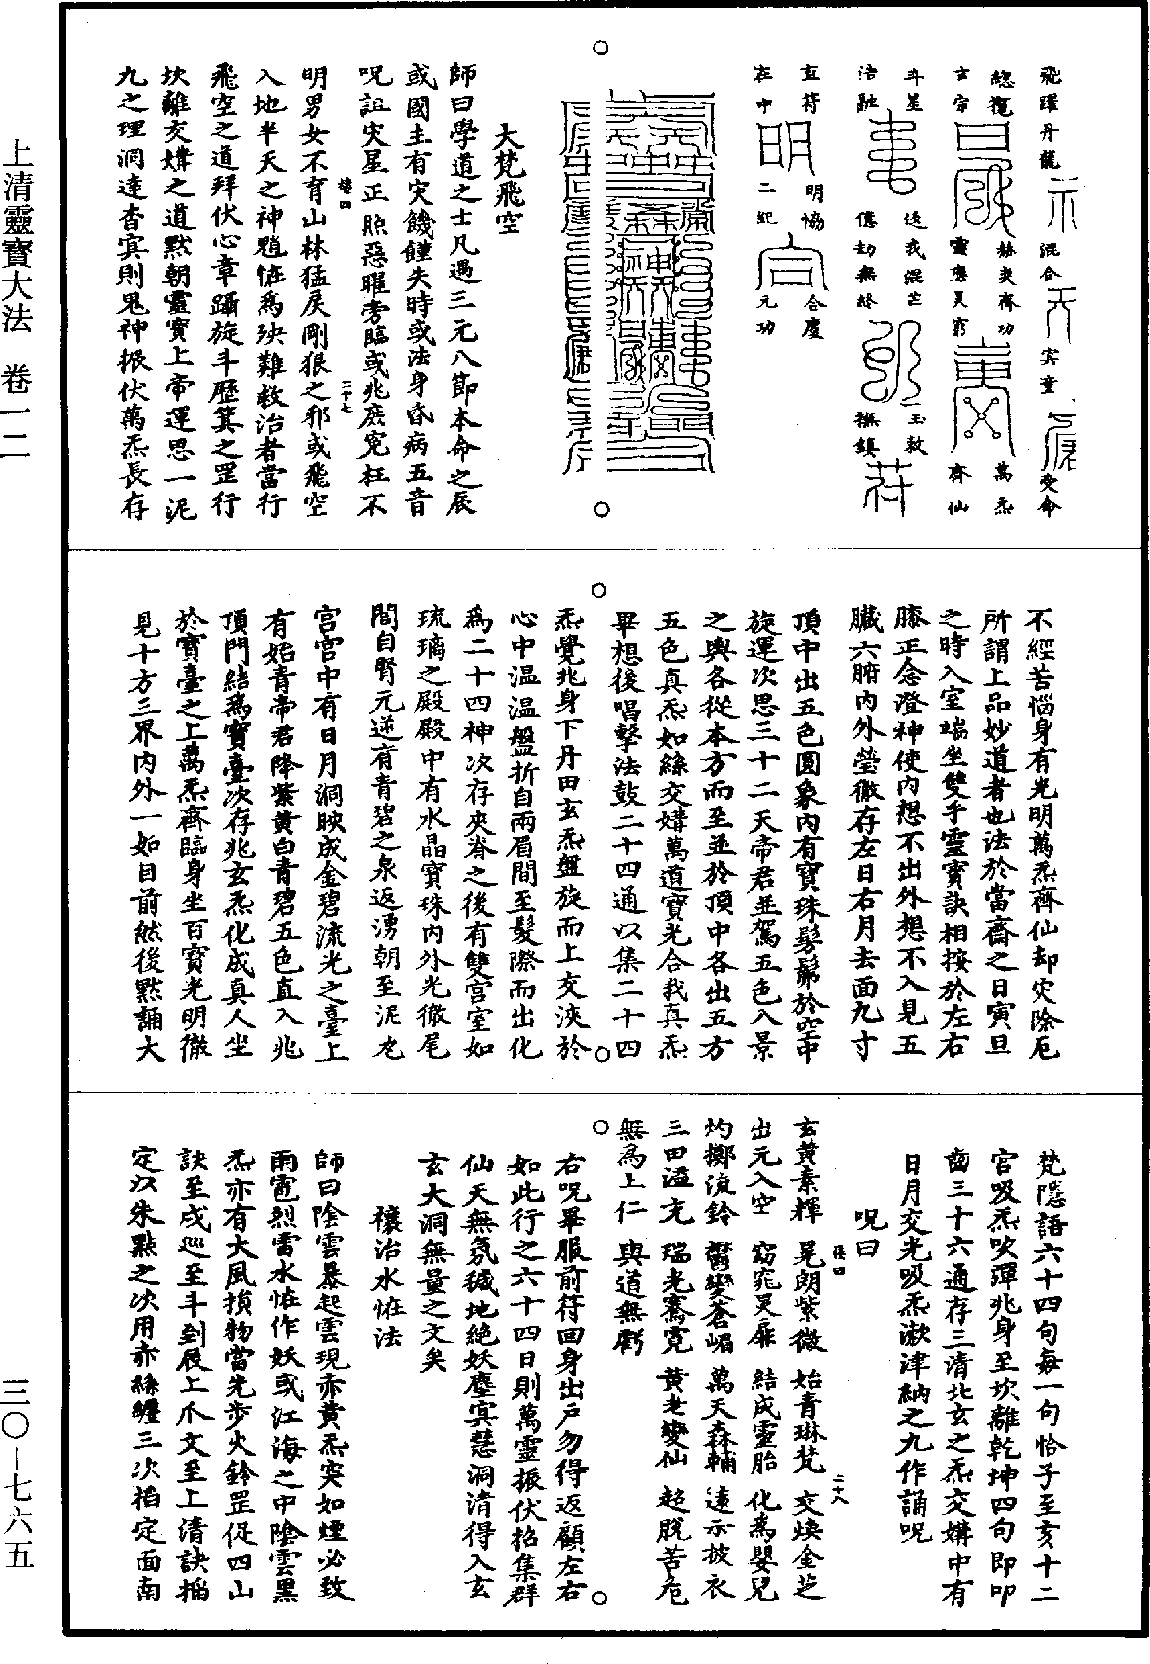 上清靈寶大法 卷一二
三〇—七六五
飛躍丹龍
混合
寅童
受命
總攬
赫奕齊功
萬炁
玄宗
齊仙
斗星
玉敕
洽融
億劫無終
撫鎮
直符
明協
合慶
在中
二紀
元功
大梵飛空
師曰學道之士凡遇三元八節本命之辰
或國主有灾饑饉失時或法身昏病五音
呪詛灾星正照惡曜旁臨或兆庶寃枉不
明男女不育山林猛戾剛狠之邪或飛空
入地半天之神魈恠為殃難救治者當行
飛空之道拜伏心章躡旋斗歷箕之罡行
坎離交媾之道默朝靈寶上帝運思一泥
九之理洞達杳冥則鬼神振伏萬炁長存
不經苦惱身有光明萬炁齊仙却灾除厄
所謂上品妙道者也法於當齋之日寅旦
之時入室端坐雙手靈寶訣相按於左右
膝正念澄神使內想不出外想不入見五
臟六腑內外瑩徹存左日右月去面九寸
頂中出五色圓象內有寶珠髣髴於空中
旋運次思三十二天帝君並駕五色八景
之輿各從本方而至並於頂中各出五方
五色真炁如絲交媾萬道寶光合我真炁
畢想後唱擊法鼓二十四通以集二十四
炁覺兆身下丹田玄炁盤旋而上交浹於
心中温温盤折自兩眉間至髮際而出化
為二十四神次存夾脊之後有雙宮室如
琉璃之殿殿中有水晶寶珠內外光徹尾
閭自腎元逆有青碧之泉返湧朝至泥丸
宮宮中有日月洞映成金碧流光之臺上
有始青帝君降紫黃白青碧五色直入兆
頂門結為寶臺次存兆玄炁化成真人坐
於寶臺之上萬炁齊臨身坐百寶光明徹
見十方三界內外一如目前然後默誦大
梵隱語六十四句每一句恰子至亥十二
宮吸炁吹彈兆身至坎離乾坤四句即叩
齒三十六通存三清北玄之炁交媾中有
日月交光吸炁漱津納之九作誦呪
呪曰
玄黃素輝 晃朗紫微 始青琳梵 交煥金芝
出元入空 窈窕昊扉 結成靈胎 化為嬰兒
灼擲流鈴 鬱變蒼嵋 萬天森輔 遠示披衣
三田溢充 瑞光騫霓 黃老變仙 超脫苦危
無為上仁 與道無虧
右呪畢服前符回身出戶勿得返顧左右
如此行之六十四日則萬靈振伏招集群
仙天無氛穢地絕妖塵冥慧洞清得入玄
玄大洞無量之文矣
禳治水恠法
師曰陰雲暴起雲現赤黃炁突如煙必致
雨雹烈雷水恠作妖或江海之中陰雲黑
炁亦有大風損物當先步火鈴罡促四山
訣至戌巡至斗到辰上爪文至上清訣掐
定以朱點之次用赤絲纏三次掐定面南